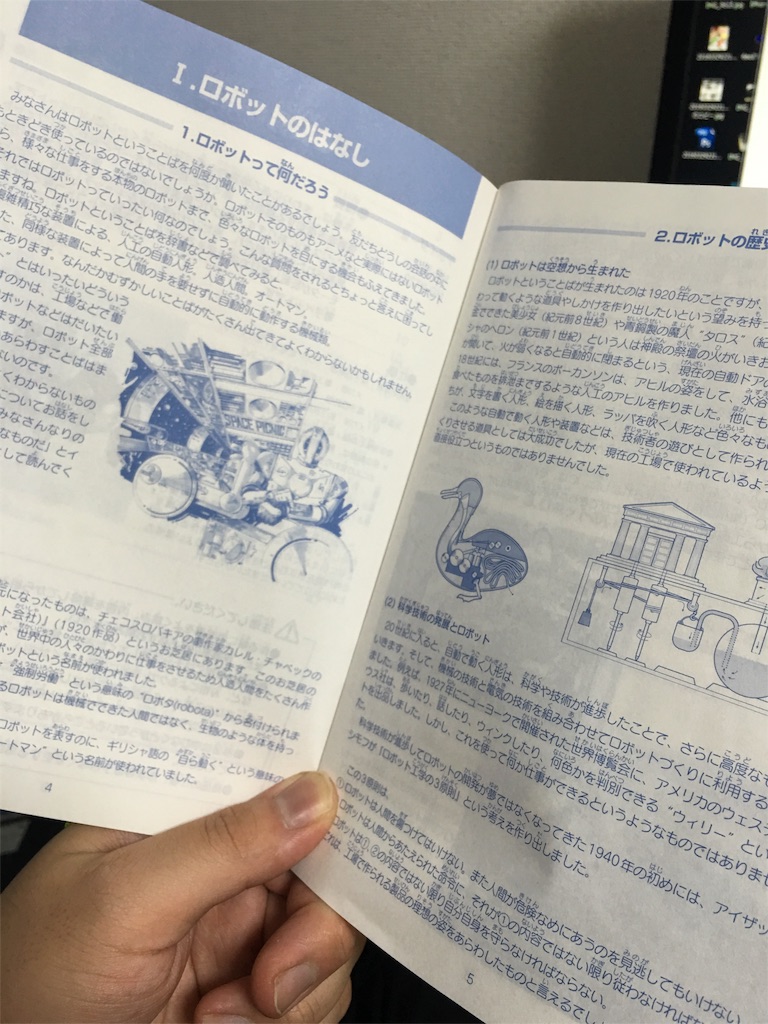 Ⅰ.ロボットのはなし
1.ロボットって何だろう
みなさんはロボットということばを何度か聞いたことがあるでしょう。友だちどうしの会話の中に
もときどき使っているのではないでしょうか。ロボットそのものもアニメなど実際にはないロボット
ら、様々な仕事をする本物のロボットまで、色々なロボットを目にする機会もふえてきました。
それではロボットっていったい何なのでしょう。こんな質問をされるとちょっと答えに困ってし
ますね。ロボットということばを辞書などで調べてみると、
複雑精巧な装置による、人工の自動人形。人造人間。オートマン。
た、同様な装置によって人間の手を要せずに自動的に動作する機械類。
こあります。なんだかむずかしいことばがたくさん出てきてよくわからないかもしれません。
”とはいったいどういう
すのかは、工場などで働
ボットなどはだいたい
ますが、ロボット全部
あらわすことばはま
ないのです。
くわからないもの
についてお話をし
みなさんなりの
なものだ」とイ
して読んでく
SPACE PICNIC
元になったものは、チェコスロバキアの劇作家カレル・チャペックの
ット会社)」(1920作品)というお芝居にあります。このお芝居の
が、世界中の人々のかわりに仕事をさせるため人造人間をたくさん作
ボットという名前が使われました。
・強制労働”という意味の“ロボタ(robota)”から名付けられま
るロボットは機械でできた人間ではなく、生物のような体を持っ
ロボットを表すのに、ギリシャ語の“自ら動く”という意味の
ートマン”という名前が使われていました。
4
2.ロボットの歴史
(1) ロボットは空想から生まれた
ロボットということばが生まれたのは1920年のことですが、
わって動くような道具やしかけを作り出したいという望みを持っ
金でできた美少女(紀元前8世紀)や青銅製の魔人“タロス”(紀
シャのヘロン(紀元前1世紀)という人は神殿の祭壇の火がいきお
が開いて、火が弱くなると自動的に閉まるという、現在の自動ドアの
18世紀には、フランスのボーカンソンは、アヒルの姿をして、水浴
食べたものを排泄までするような人工のアヒルを作りました。他にも
ちが、文字を書く人形、絵を描く人形、ラッパを吹く人形など色々なも
このような自動で動く人形や装置などは、技術者の遊びとして作られ
くりさせる道具としては大成功でしたが、現在の工場で使われているよう
直接役立つというものではありませんでした。
(2) 科学技術の発展とロボット
20世紀に入ると、自動で動く人形は、科学や技術が進歩したことで、さらに高度なも
いきます。そして、機械の技術と電気の技術を組み合わせてロボットづくりに利用する
ました。例えば、1927年にニューヨークで開催された世界博覧会に、アメリカのウェステ
ラス社は、歩いたり、話したり、ウィンクしたり、何色かを判別できる“ウィリー”とい
トを出品しました。しかし、これを使って何か仕事ができるというようなものではありませ
た。
科学技術が進歩してロボットの開発が夢ではなくなってきた1940年の初めには、アイザッ
シモフが「ロボット工学の3原則」という考えを作り出しました。
この3原則は、
①ロボットは人間を傷つけてはいけない。また人間が危険なめにあうのを見逃してもいけない
ロボットは人間からあたえられた命令に、それが①の内容ではない限り従わなければな
ロボットは①,②の内容ではない限り自分自身を守らなければならない。
れは、工場で作られる製品の理想の姿をあらわしたものと言えるでし
5